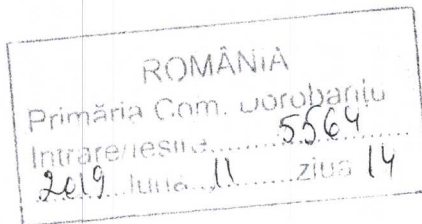 ROMÂNIA
Primăria Com. Dorobanțu
Intrare/Iesire......5564......
2019 luna 11 ziua 14